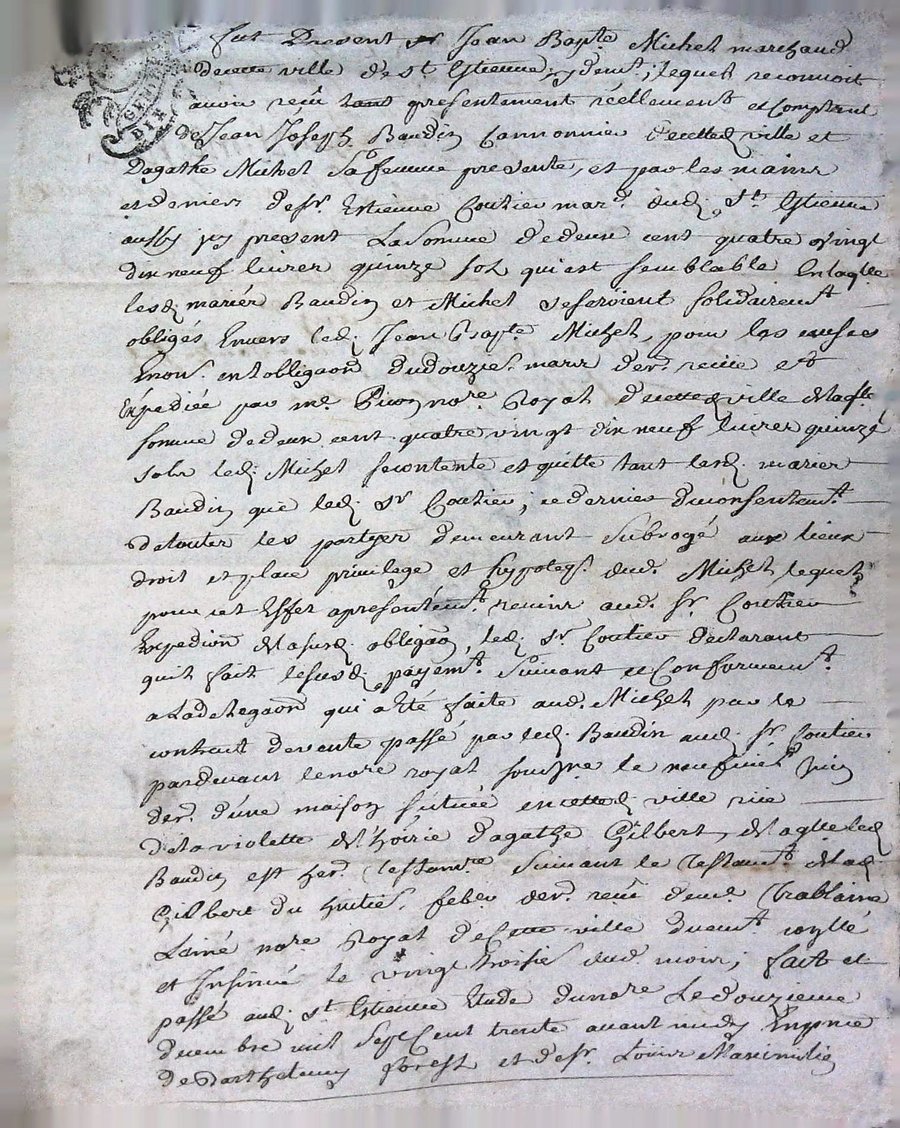 GEN
DIN
fut Present sr Jean Bapte. Michel marchand
decette ville de st Estienne y demt; lequel reconnoit
avoir reçu tant presentement réellement et comptant
de Jean Joseph Baudin Cannonnier decetted ville et
Dagathe Michel Sa femme presente, et par les mains
et deniers de Sr. Estienne Coutieu mard. dud. St. Estienne
aussy icy present La Somme de deux cent quatre vingt
dix neuf livres quinze sols qui est semblable En laqlle
lesd. mariés Baudin et Michel Se seroient Solidairemt
obligés Envers led. Jean Bapte. Michel, pour les causes
Enon. en lobligaon dudouzie. mars der. reçue et
Expediée par me. nore. Royal decetted ville delaqle.
Somme de deux cent quatre vingt dix neuf livres quinze
sols led. Michel se contente et quitte tant lesd. mariés
Baudin que led. Sr Coutieu; ce dernier du consentemt.
de toutes les partyes demeurant Subrogé aux lieux
droit et place privilege et hypoteq. dud. Michel lequel
pour cet Effet a presentemt. remis aud. Sr. Coutieu
Expedion delasusd. obligaon, led. Sr. Coutieu declarant
quil fait lesusd. payemt. Suivant et Conformemt.
a Ladelegaon qui a été faite aud. Michel par le
contract de vente passé par led. Baudin aud. Sr Coutieu
pardevant le nore royal soussne le neufvie. juin
der. d'une maison scituée en cetted. ville rüe
de la violette de l'hoirie d'agathe Gilbert, de laqlle led.
Baudin est her. testamre. Suivant le Testamt. delad.
Gilbert du huitie. febr. der. reçu demd. Trablaine
Lainé nore Royal de cette ville duemt. conllé
et Insinué le vingt troisie. dud. mois; fait et
passé aud. st Estienne Etude dunore Le douzieme
decembre mil Sept Cent trente avant midy En pnce
de Barthelemy forest et de Sr. Louis Maximilien